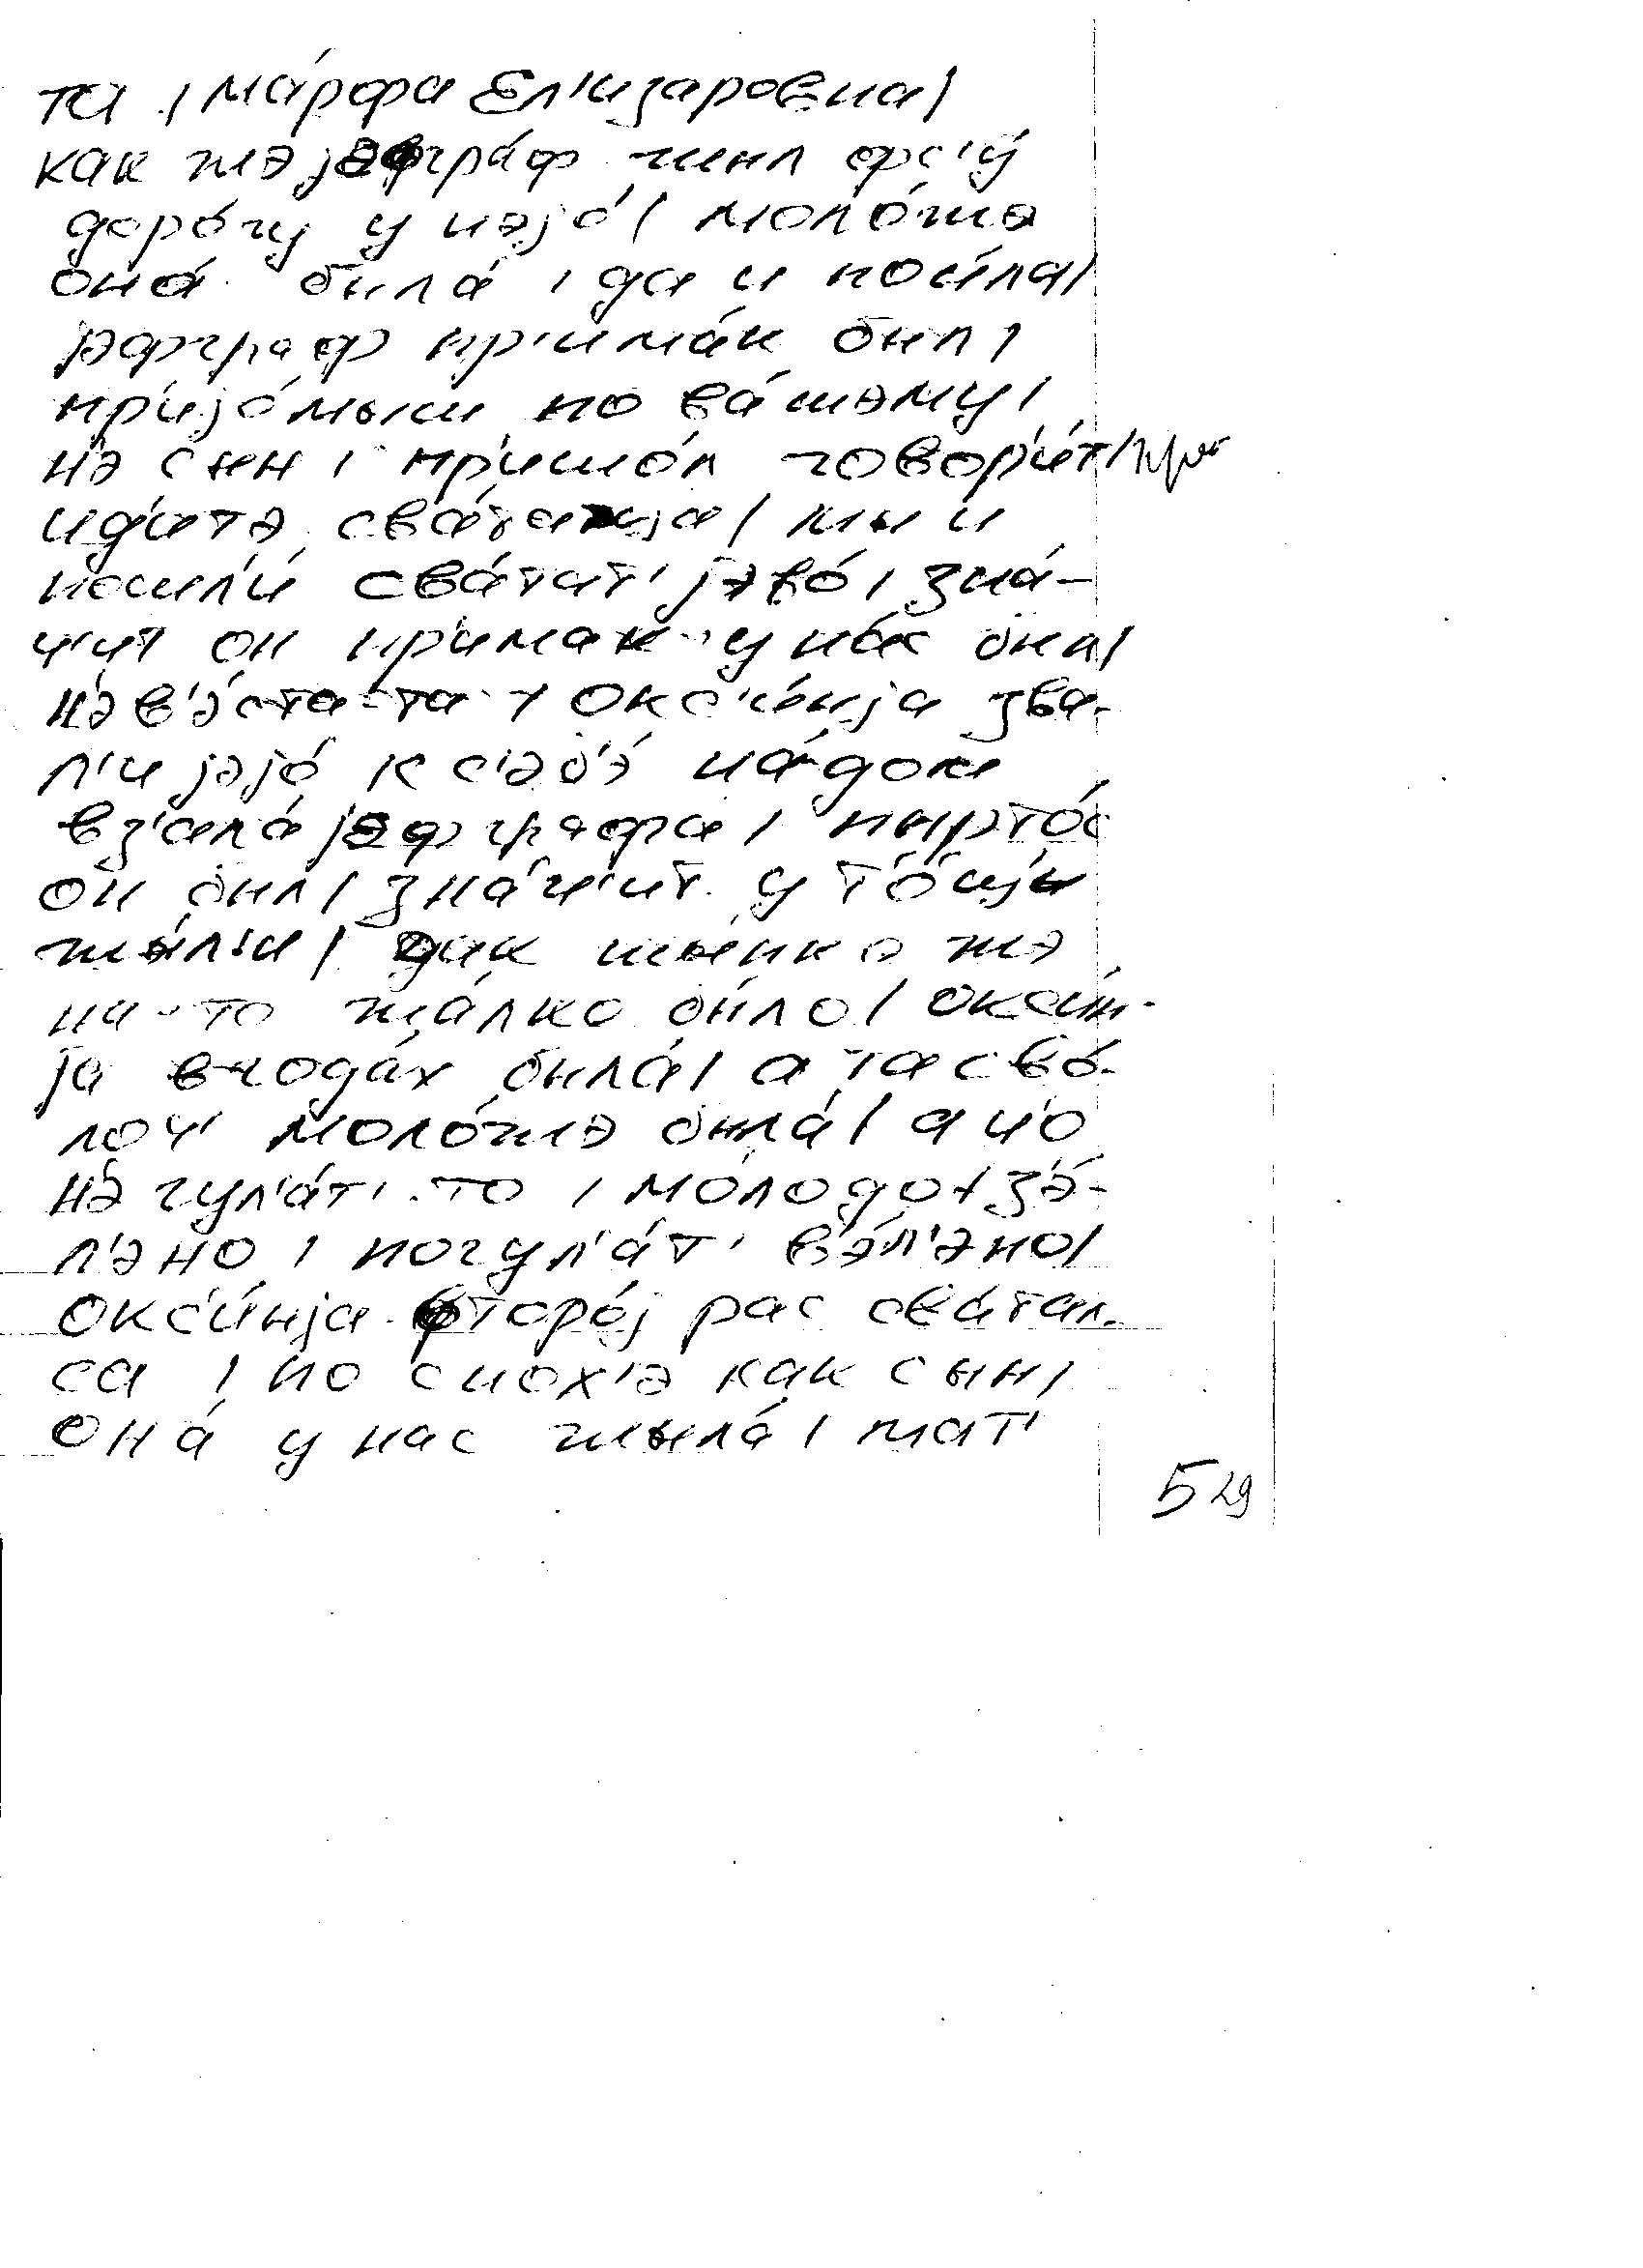 та / ма́рфа Ел'изаровна /
как жэ јэфгра́ф жил фс'у́
доро́гу у нэјо́ / моло́жэ
она́ была́ / да и пошла́ /
јэфграф пр'има́к был /
пр'ијо́мыш по ва́шэму /
н'э сын / пр'ишо́л говор'и́т /
ид'и́т'э сва́татца / мы и
пошл'и́ сва́тат' јэво́ / зна́-
ч'ит он пр'имак у на́с был /
н'эв'э́ста-та / окс'и́н'ја зва-
л'и јэјо́ к с'эб'э́ на́ дом
вз'ала́ јэфграфа /
он был / зна́ч'ит у т'о́шч'и
жы́л'и /
на-то жа́лко бы́ло / окс'и́н'-
ја в года́х была́ / а та сво́-
лоч' моло́жэ была́ / а ч'о
н'э гул'а́т'-то / мо́лодо / з'э́-
л'эно / погул'а́т' в'э́л'эно /
окс'и́н'ја фторо́ј рас сва́тал-
са / по снох'э как сын /
она́ у нас жыла́ / мат'
529